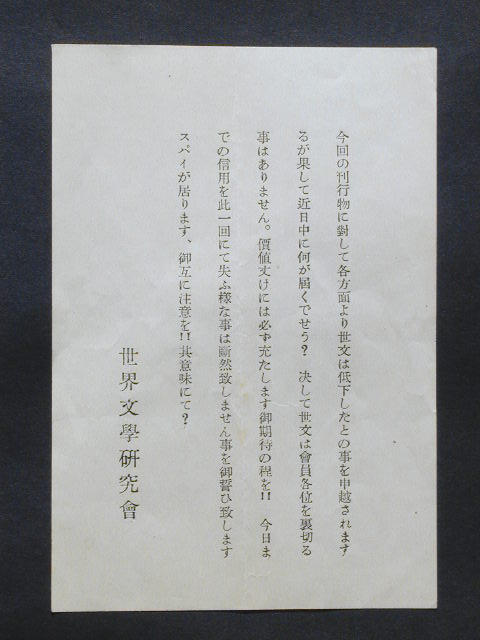 今回の刊行物に對して各方面より世文は低下したとの事を申越されます
るが果して近日中に何が屆くでせう？　決して世文は會員各位を裏切る
事はありません。價値丈けには必ず充たします御期待の程を!!　今日ま
での信用を此一回にて失ふ様な事は斷然致しません事を御誓ひ致します
スパイが居ります、御互に注意を!!其意味にて？
世界文學硏究會